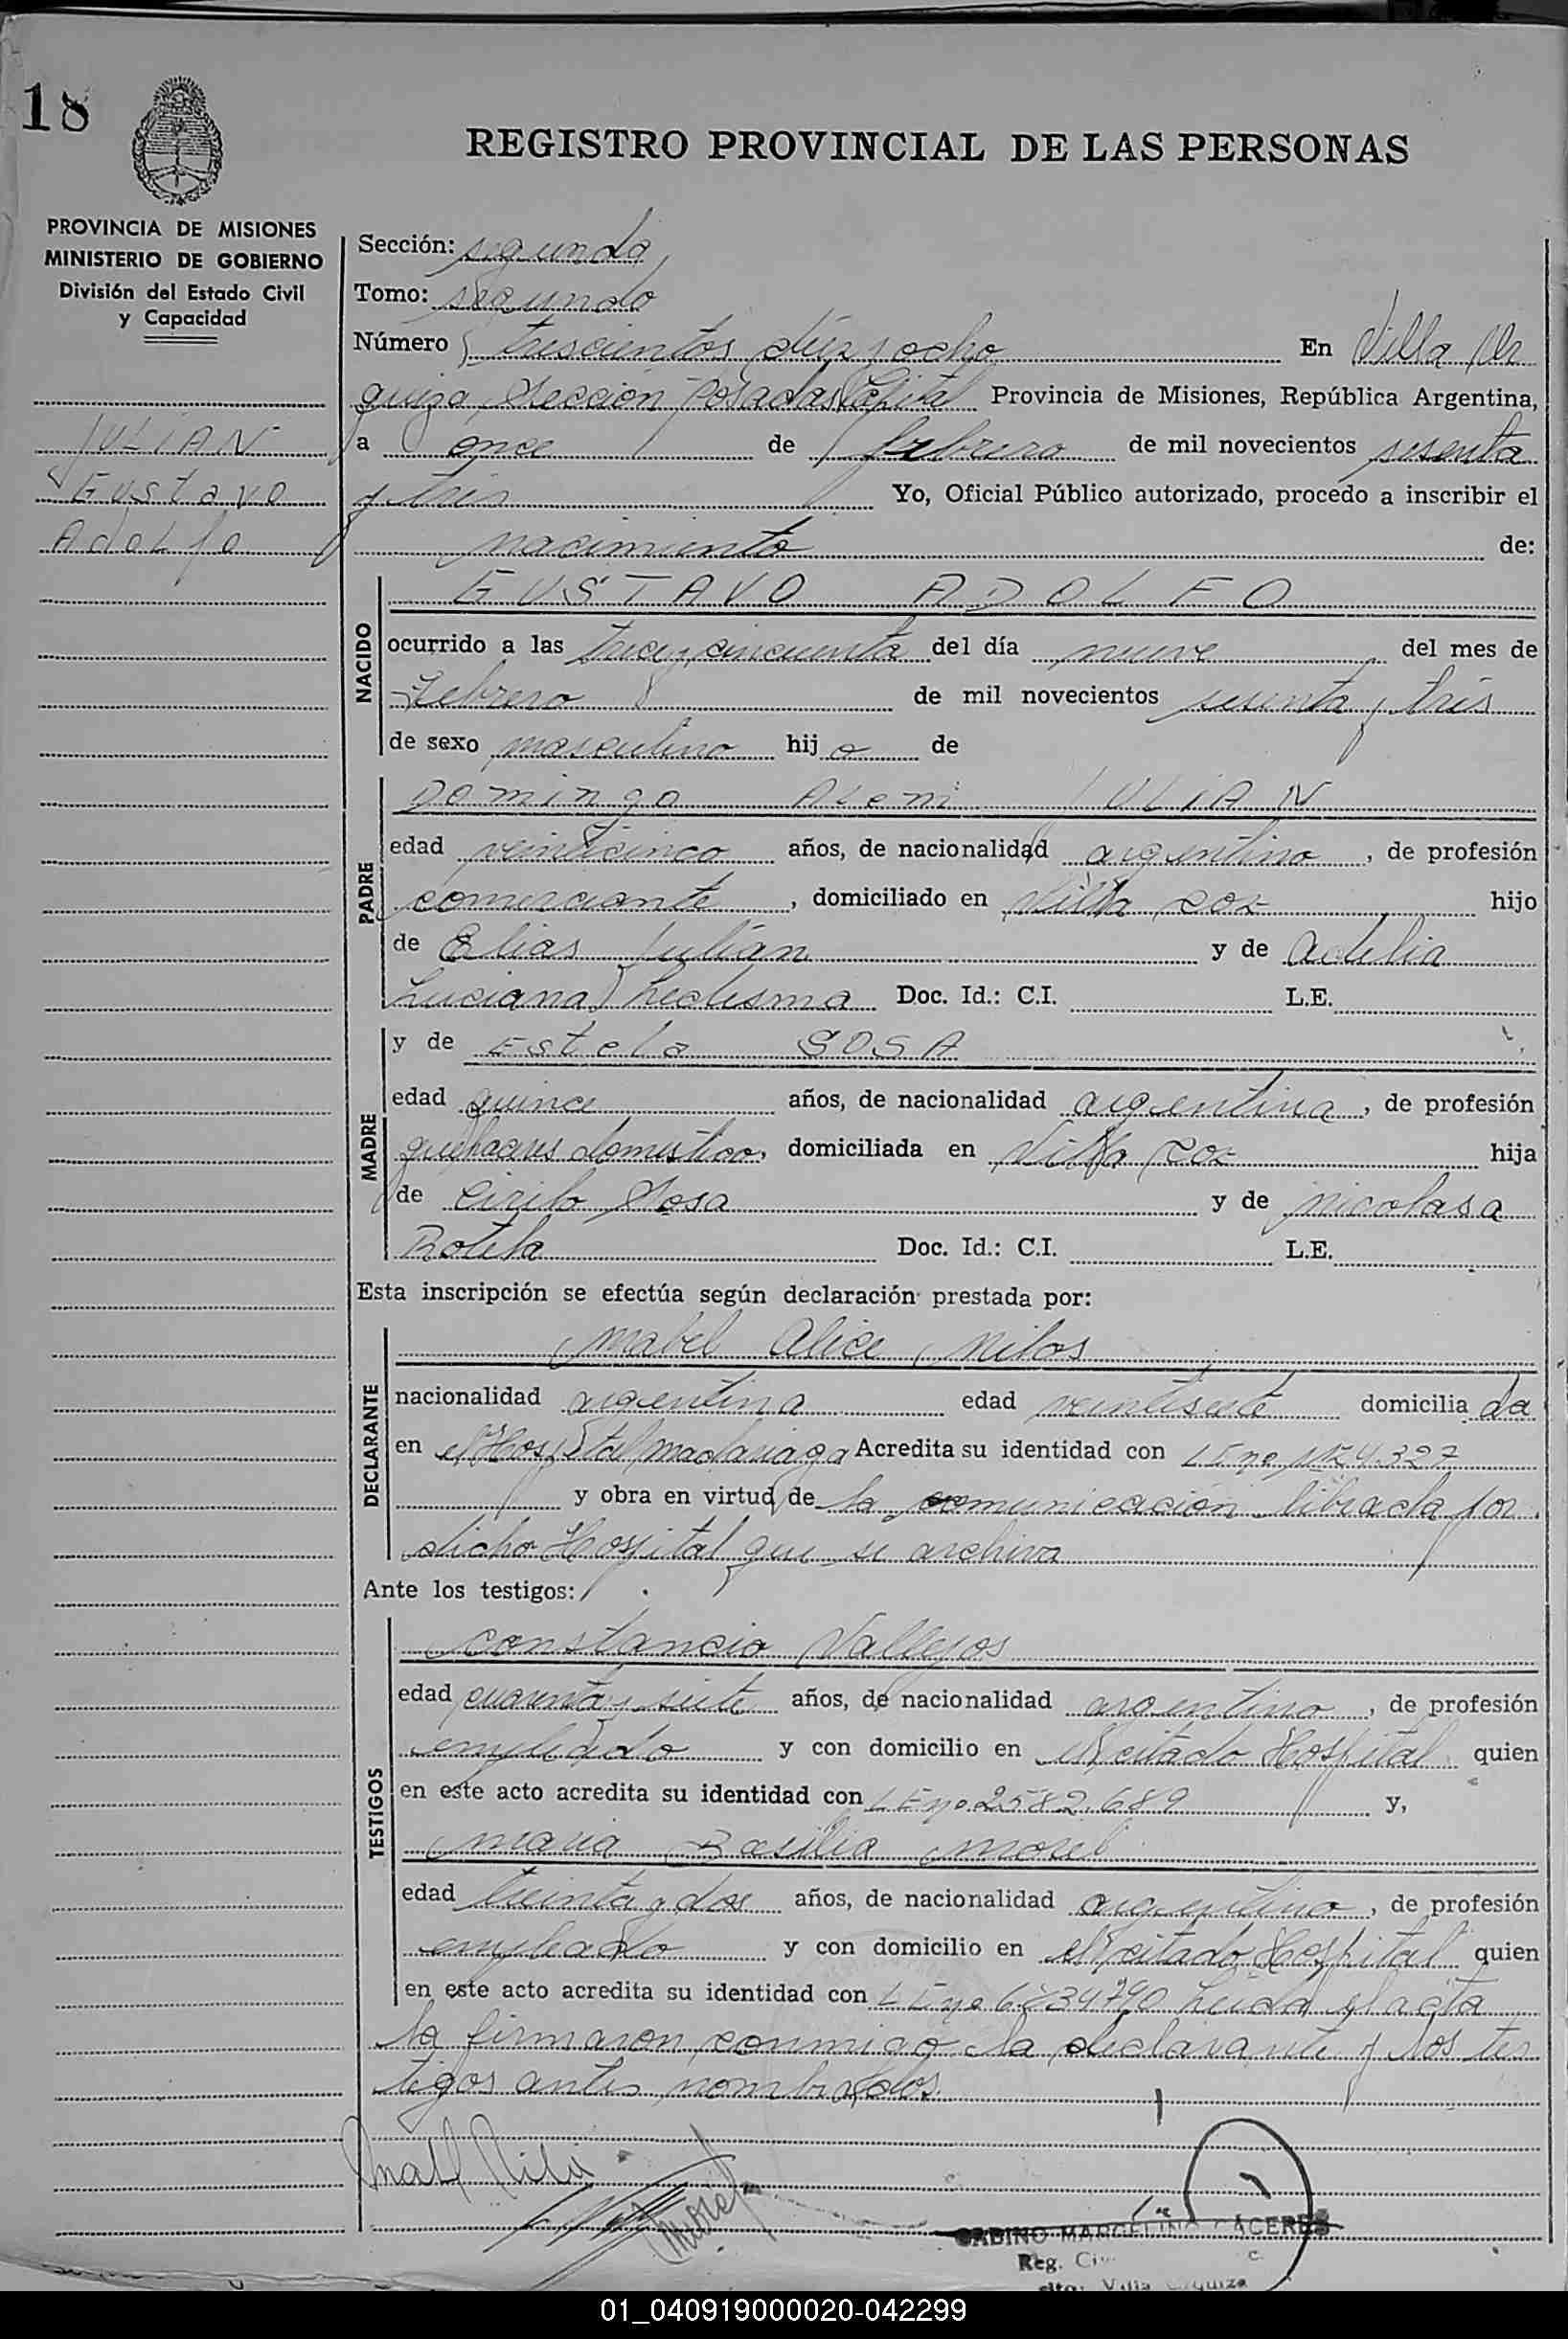 18
REGISTRO PROVINCIAL DE LAS PERSONAS
PROVINCIA DE MISIONES
MINISTERIO DE GOBIERNO
División del Estado Civil
y Capacidad
JULIAN
Gustavo
Adolfo
Sección: segunda
Tomo: segundo
Número trescientos diez y ocho En Villa Ur
quiza Sección Posadas Capital Provincia de Misiones, República Argentina,
a once de febrero de mil novecientos sesenta
y tres Yo, Oficial Público autorizado, procedo a inscribir el
nacimiento de:
NACIDO
GUSTAVO ADOLFO
ocurrido a las trece y cincuenta del día nueve del mes de
Febrero de mil novecientos sesenta y tres
de sexo masculino hijo de
PADRE
Domingo Alem JULIAN
edad veinticinco años, de nacionalidad argentino, de profesión
comerciante, domiciliado en Villa hijo
de Elias Julian y de Adelia
Luciana Ledesma Doc. Id.: C.I. L.E.
MADRE
y de Estela SOSA
edad quince años, de nacionalidad argentina, de profesión
quehaceres domestico, domiciliada en Villa hija
de Cirilo Sosa y de Nicolasa
Rotela Doc. Id.: C.I. L.E.
Esta inscripción se efectúa según declaración prestada por:
DECLARANTE
Mabel Alice
nacionalidad argentina edad veintisiete domiciliada
en el Hospital Madariaga Acredita su identidad con LE no
y obra en virtud de la comunicación librada por
dicho Hospital que se archiva
Ante los testigos:
TESTIGOS
Constancio Vallejos
edad cuarenta y siete años, de nacionalidad argentino, de profesión
empleado y con domicilio en el citado Hospital quien
en este acto acredita su identidad con LE no 2582.689 y,
Maria Basilia Morel
edad treinta y dos años, de nacionalidad argentino, de profesión
empleado y con domicilio en el citado Hospital quien
en este acto acredita su identidad con LE no Leida el acta
la firmaron conmigo la declarante y los tes
tigos antes nombrados.
Morel
GABINO MARCELINO CACERES
Reg. Civ
Villa Urquiza
01_040919000020-042299